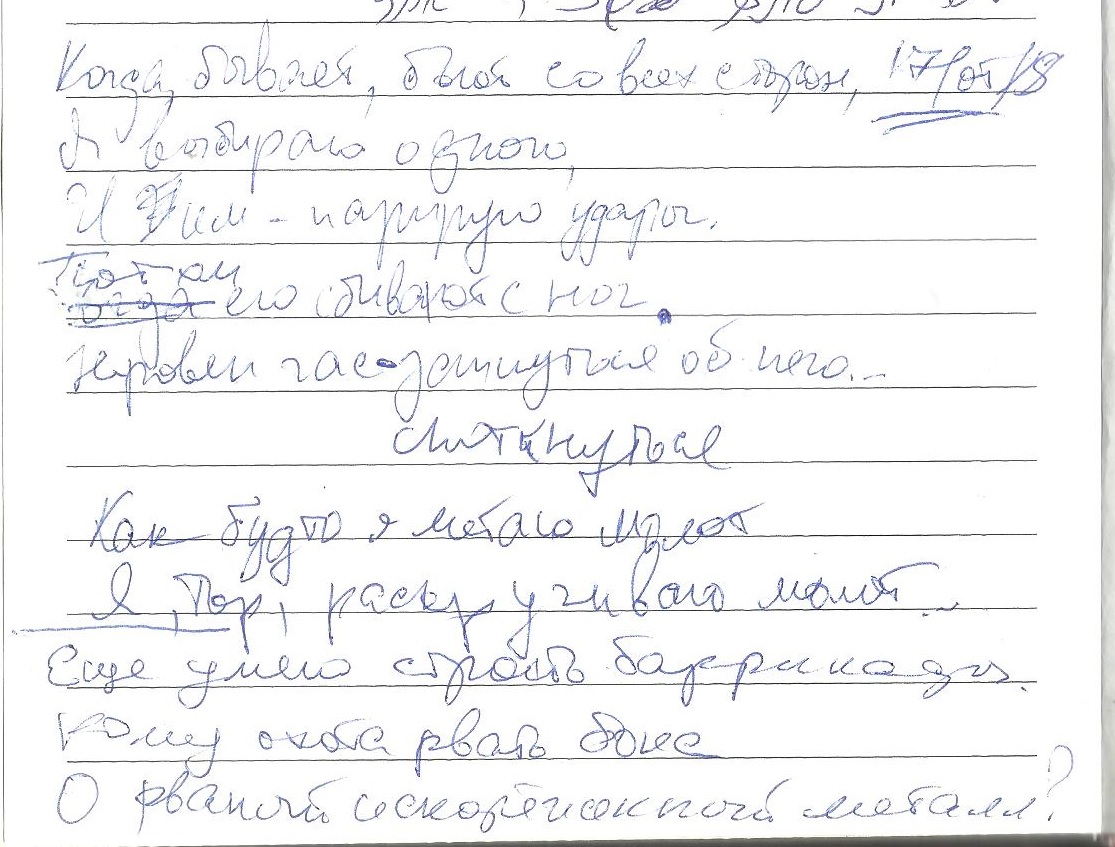 Когда, бывает, бьют со всех сторон,
Я выбираю одного,
И им - парирую удары.
Потом его сбивают с ног.
Неровен час - запнуться об него...
споткнуться
Как будто я метаю молот
Я, Тор, раскручиваю молот...
Еще умею строить баррикады.
Кому охота рвать бока
О рваный искорёженный металл?